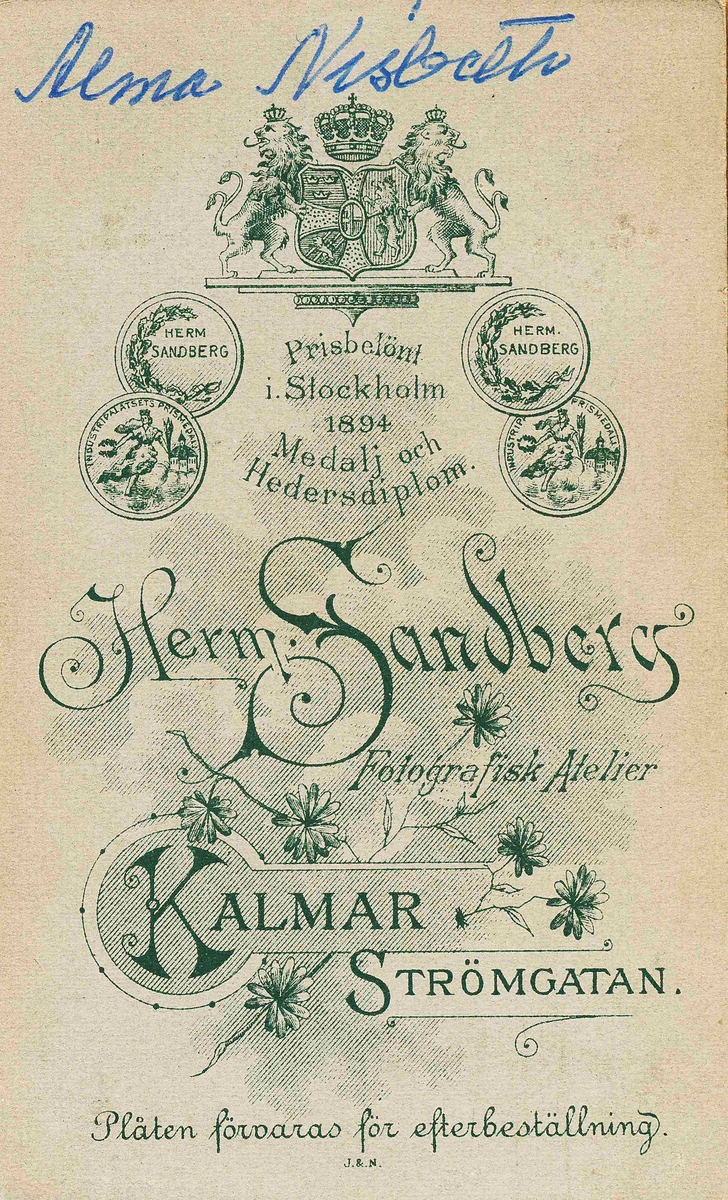 Alma Nisbeth
HERM
SANDBERG
INDUSTRIPALATSETS PRISMEDALJ
Prisbelönt
i. Stockholm
1894
Medalj och
Hedersdiplom.
HERM.
SANDBERG
INDUSTRIP PRISMEDALJ
Herm. Sandberg
Fotografisk Atelier
KALMAR
STRÖMGATAN.
Plåten förvaras för efterbeställning.
J.&.N.